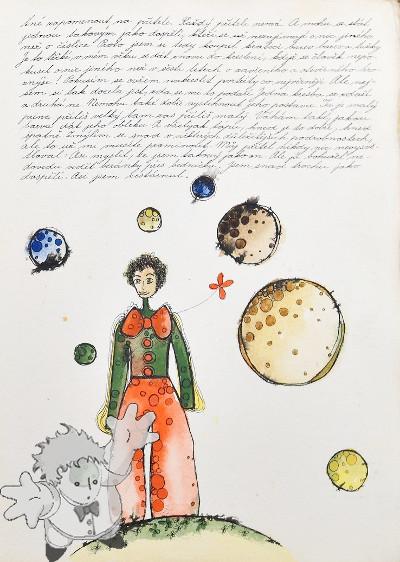 tné zapomenout na přítele. Každý přítele nemá. A mohu se stát
jednou takovým jako dospělí, kteří se už nezajímají o nic jiného
než o číslice. Proto jsem si tedy koupil krabici barev a tužky.
Je to těžké v mém věku se dát znovu do kreslení, když se člověk nepo-
kusil o nic jiného než v šesti letech o zavřeného a otevřeného hro-
znýše. Pokusím se ovšem nakreslit portréty co nejvěrněji. Ale nej-
sem si tak docela jist, zda se mi to podaří. Jedna kresba se vydaří
a druhá ne. Nemohu také dobře vystihnout jeho postavu. Tu je malý
princ příliš velký, tam zas příliš malý. Váhám také, jakou
barvu dát jeho obleku. A všelijak tápu, hned je to dobré, hned
špatné. Zmýlím se snad v některých důležitých podrobnostech,
ale to už mi musíte prominout. Můj přítel nikdy nic nevysvě-
tloval. Asi myslil, že jsem takový jako on. Ale já bohužel ne-
dovedu vidět beránky přes bedničku. Jsem snad trochu jako
dospělí. Asi jsem zestárnul.